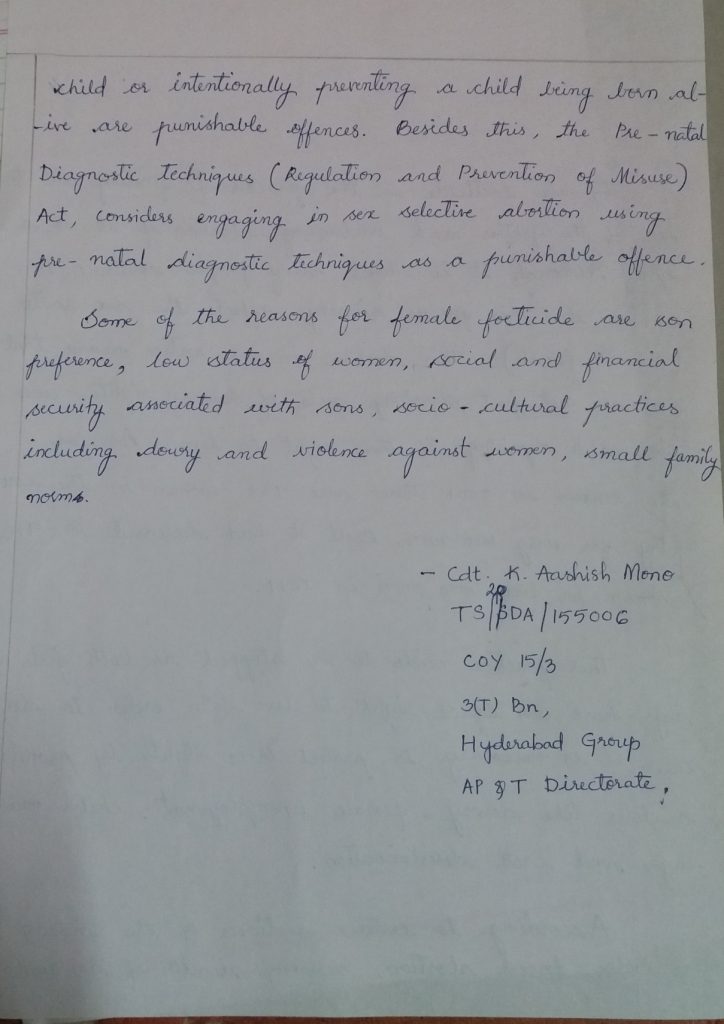 child or intentionally preventing a child being born al-
-ive are punishable offences. Besides this, the Pre-natal
Diagnostic Techniques (Regulation and Prevention of Misuse)
Act, considers engaging in sex selective abortion using
pre-natal diagnostic techniques as a punishable offence.
Some of the reasons for female foeticide are son
preference, low status of women, social and financial
security associated with sons, socio-cultural practices
including dowry and violence against women, small family
norms.
- Cdt. K. Aashish Mono
TS/20/SDA/155006
COY 15/3
3(T) Bn,
Hyderabad Group
AP & T Directorate.